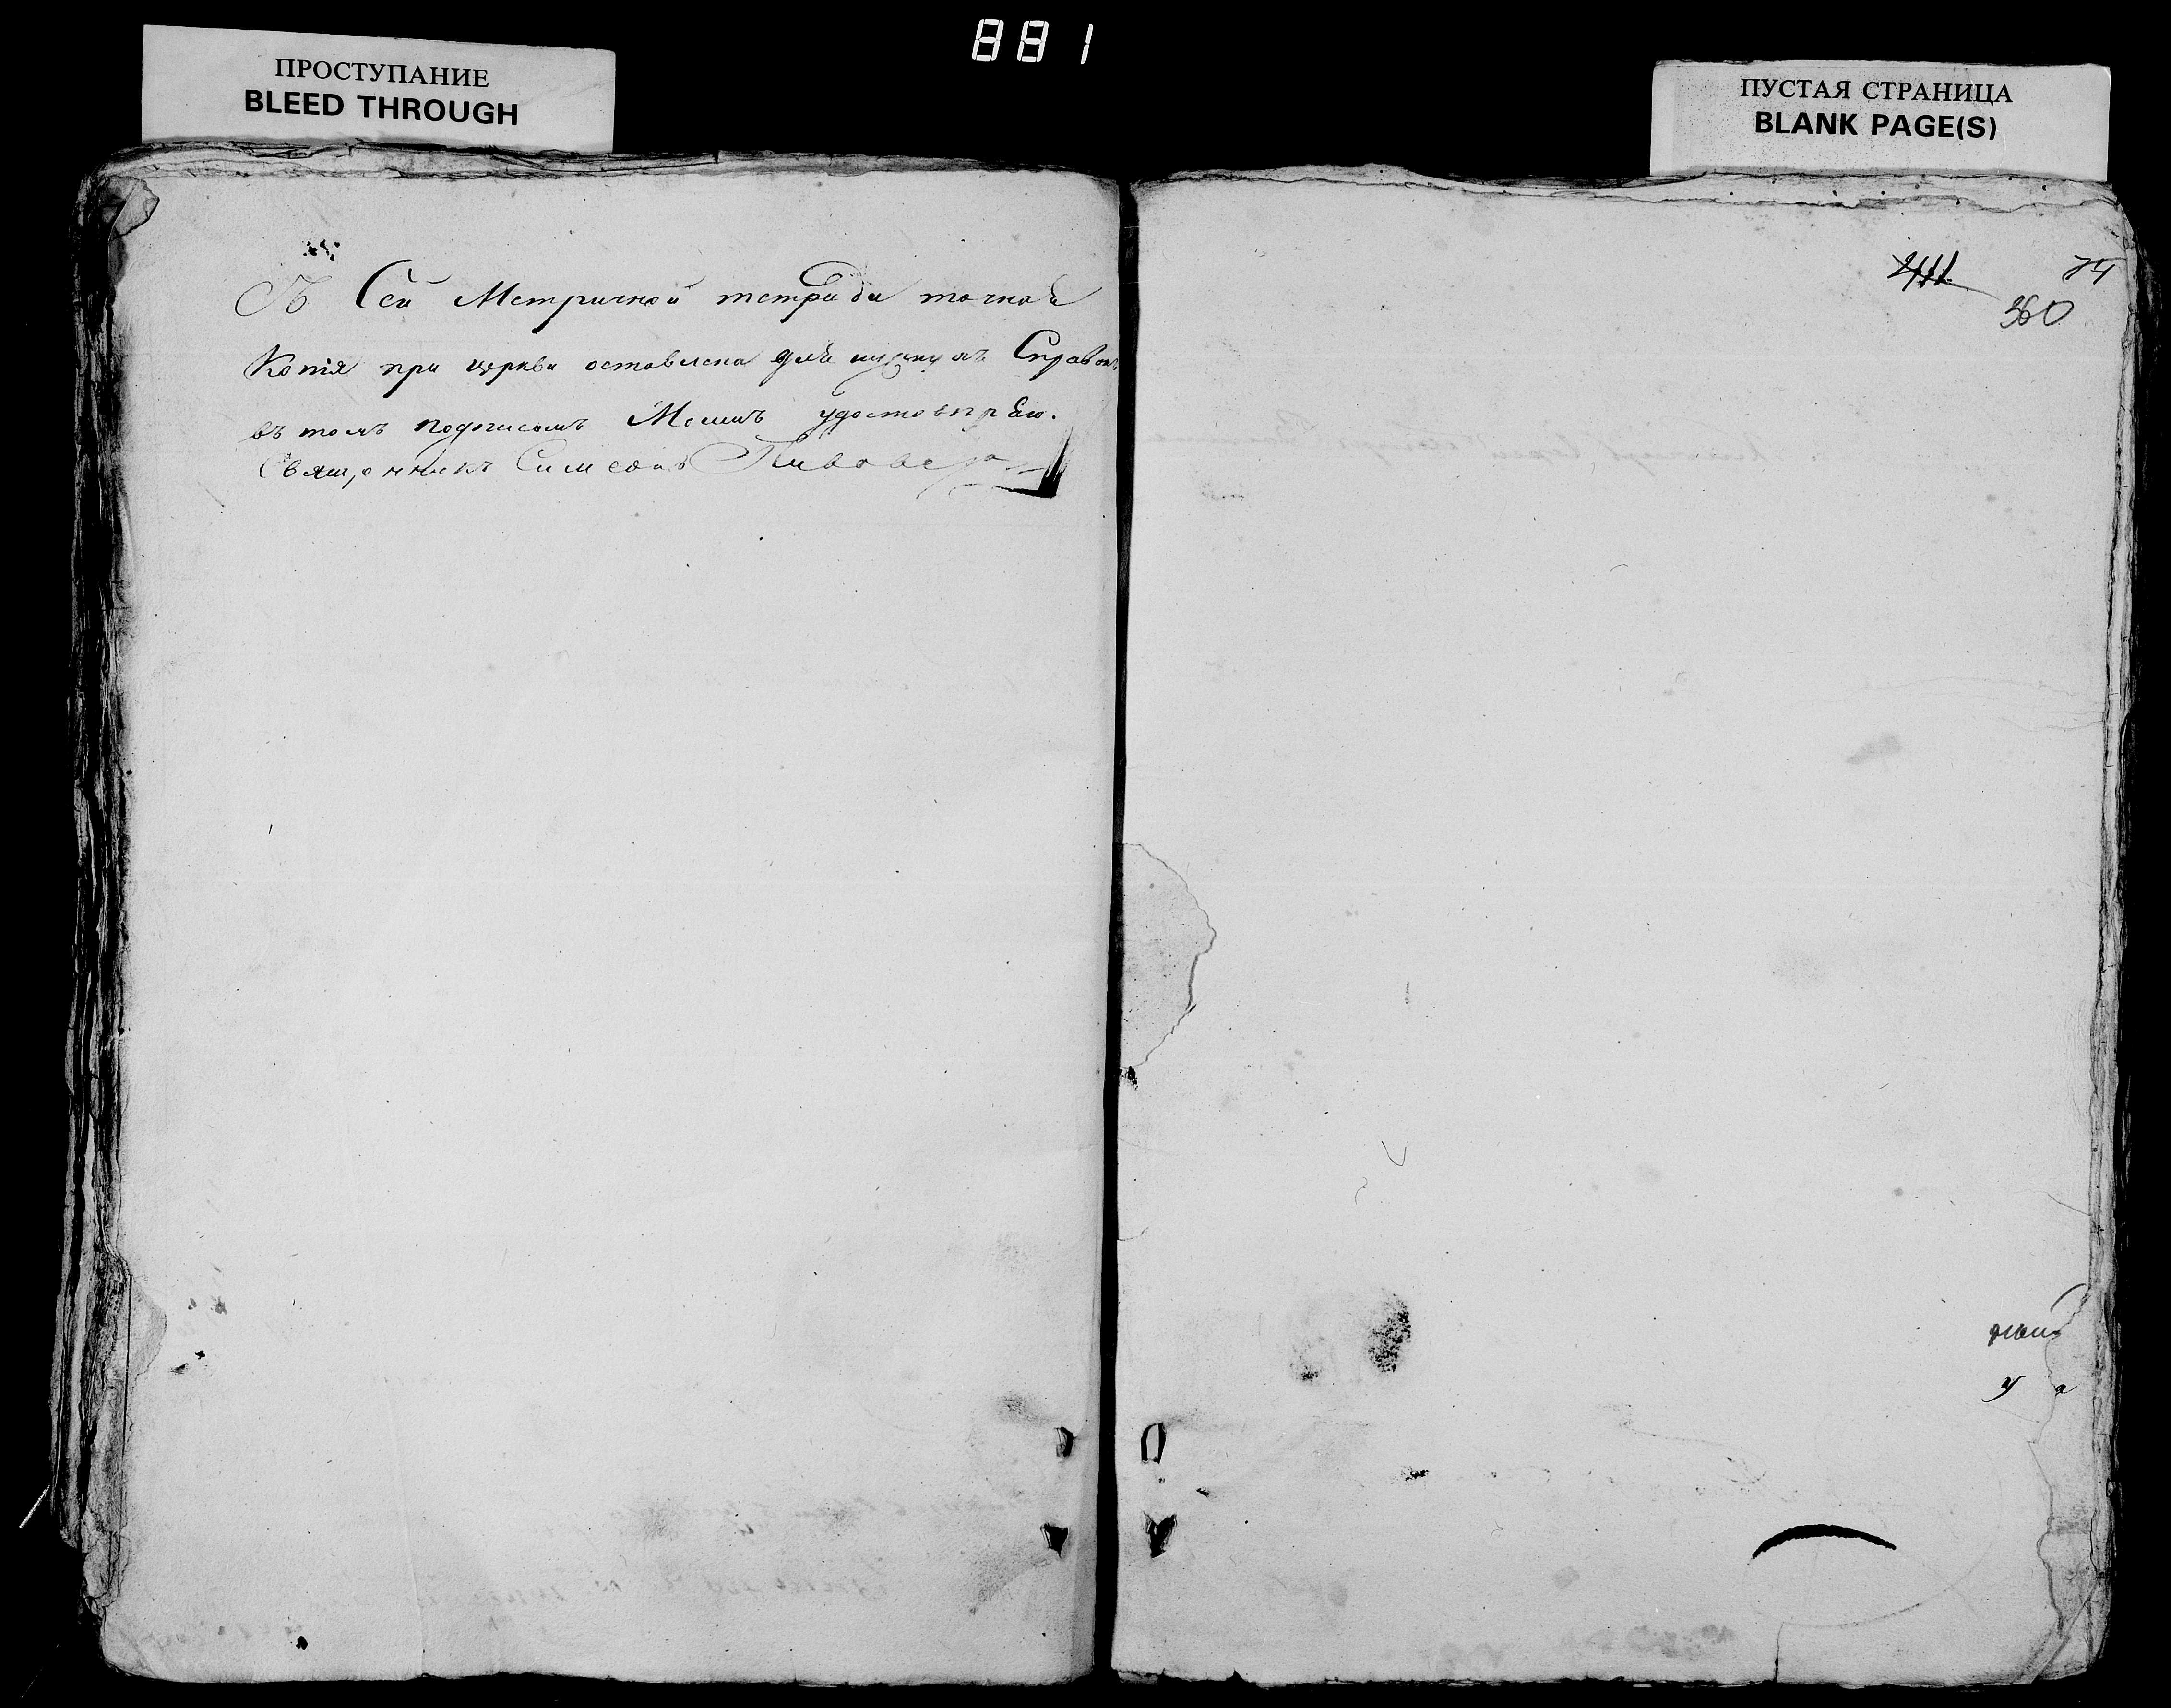 881
ПРОСТУПАНИЕ
BLEED THROUGH
ПУСТАЯ СТРАНИЦА
BLANK PAGE(S)
Съ Сей Метричной тетради точная
Копія при церкви оставлена для нужныхъ Справокъ
въ томъ подписомъ Моимъ удостовѣряю.
Священникъ Симеонъ
74
360